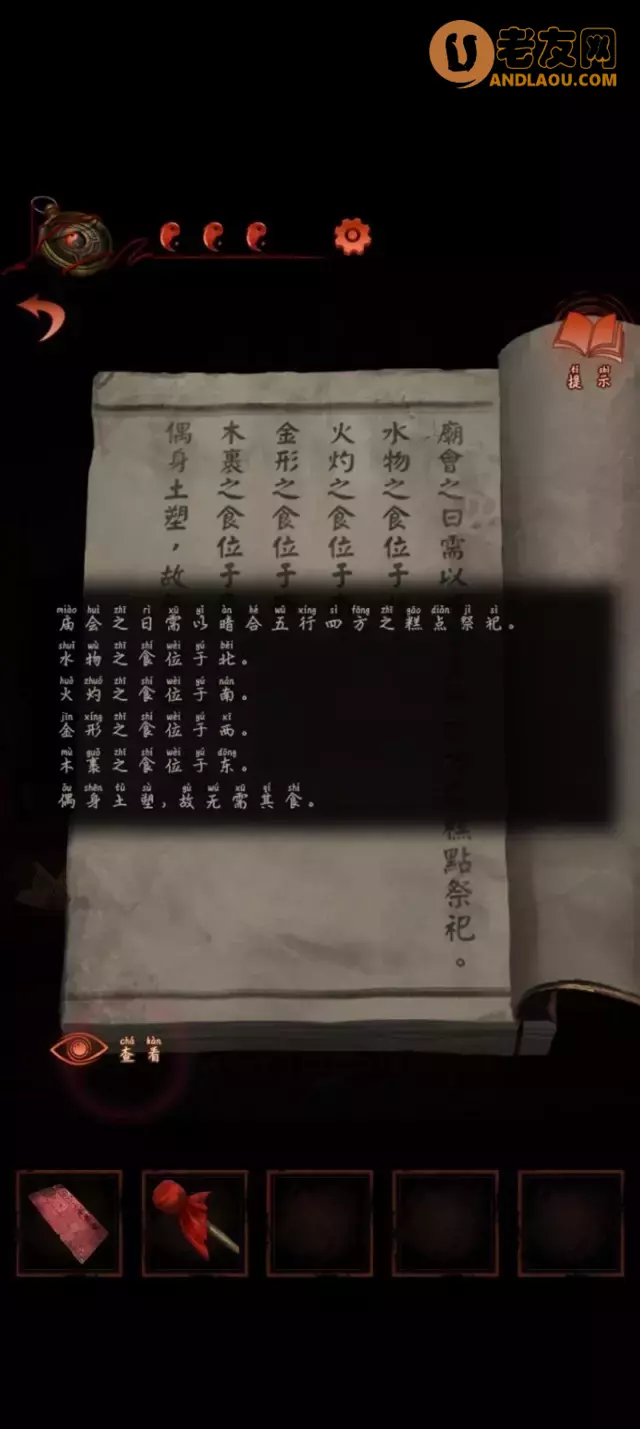 老友网
ANDLAOU.COM
tí shì
提示
廟會之日需以
糕點祭祀。
水物之食位于
火灼之食位于
金形之食位于
木裹之食位于
偶身土塑，故
miào huì zhī rì xū yǐ àn hé wǔ xíng sì fāng zhī gāo diǎn jì sì
庙会之日需以暗合五行四方之糕点祭祀。
shuǐ wù zhī shí wèi yú běi
水物之食位于北。
huǒ zhuó zhī shí wèi yú nán
火灼之食位于南。
jīn xíng zhī shí wèi yú xī
金形之食位于西。
mù guǒ zhī shí wèi yú dōng
木裹之食位于东。
ǒu shēn tǔ sù gù wú xū qí shí
偶身土塑,故无需其食。
chá kàn
查看